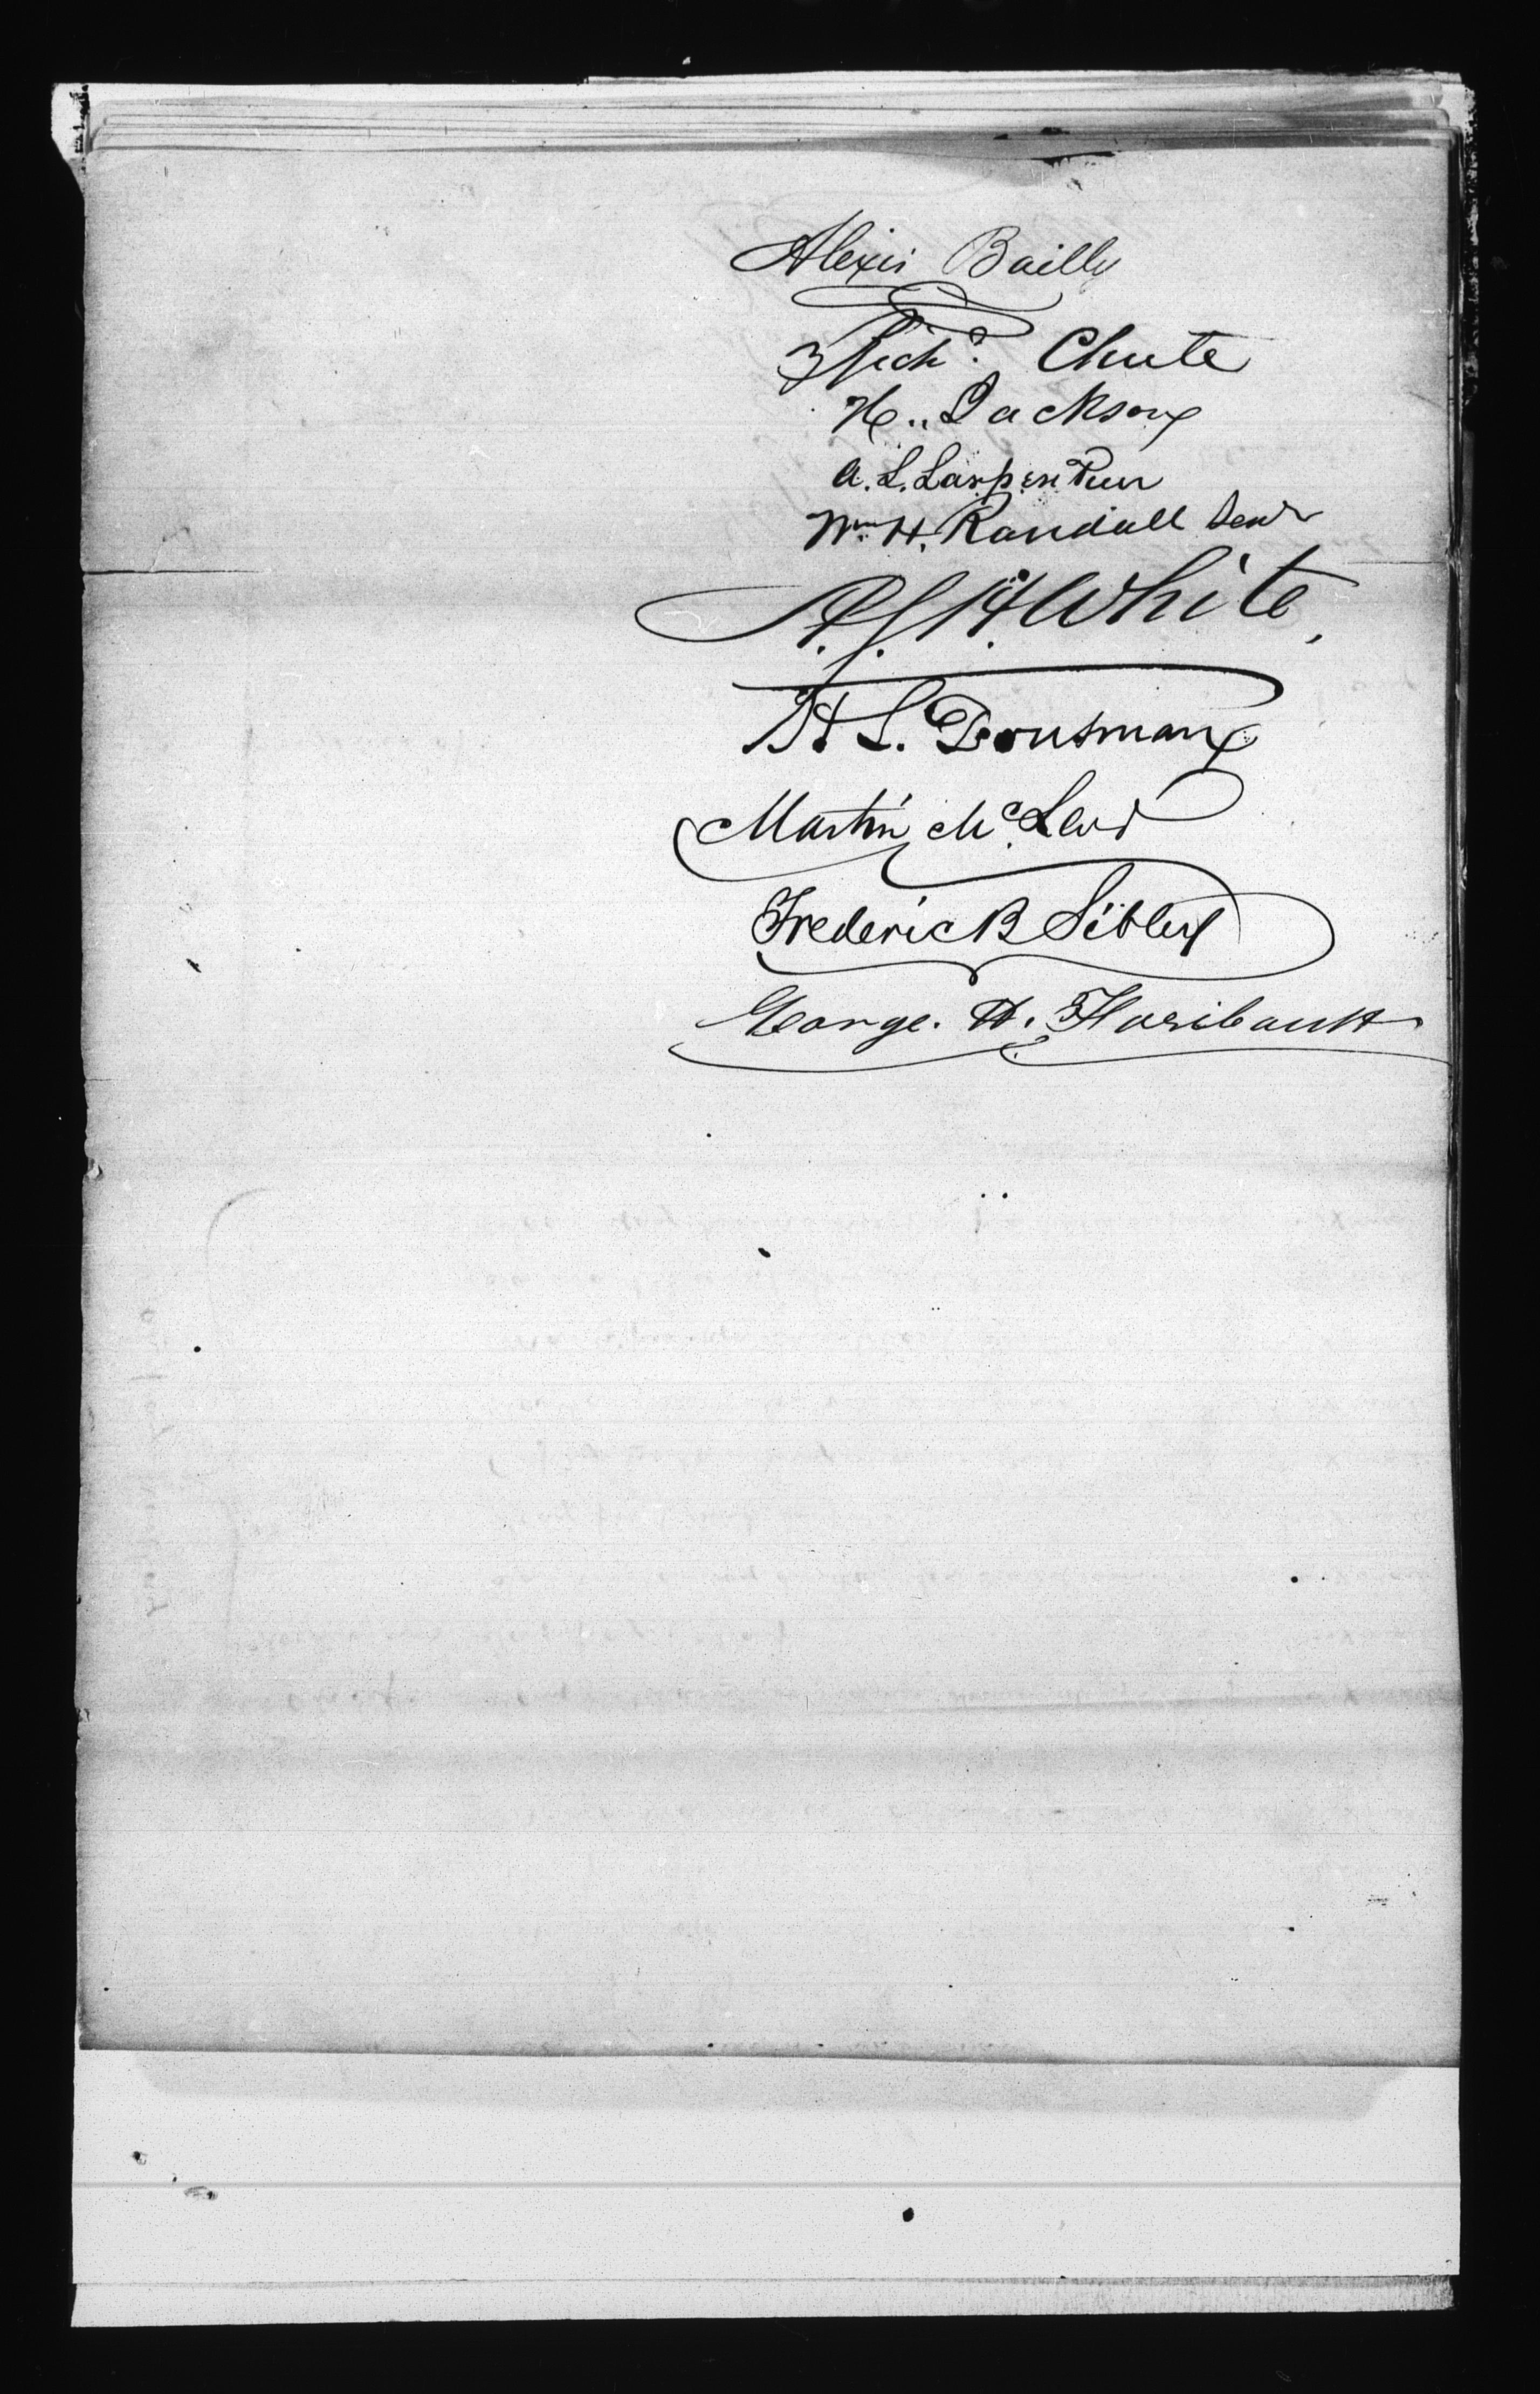 Alexis Bailly
Richd. Chute
H. Jackson
A. L. Larpenteur
Wm. H. Randall Senr
A. S. H. White,
H L. Dousman
Martin McLeod
Frederic B Sibley
George. H. Faribault